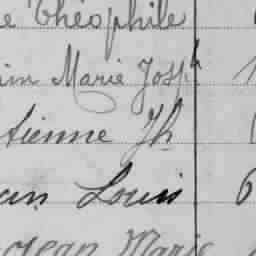 e Théophile
im Marie Josph
tienne Jh
an Louis 6
Jean Marie